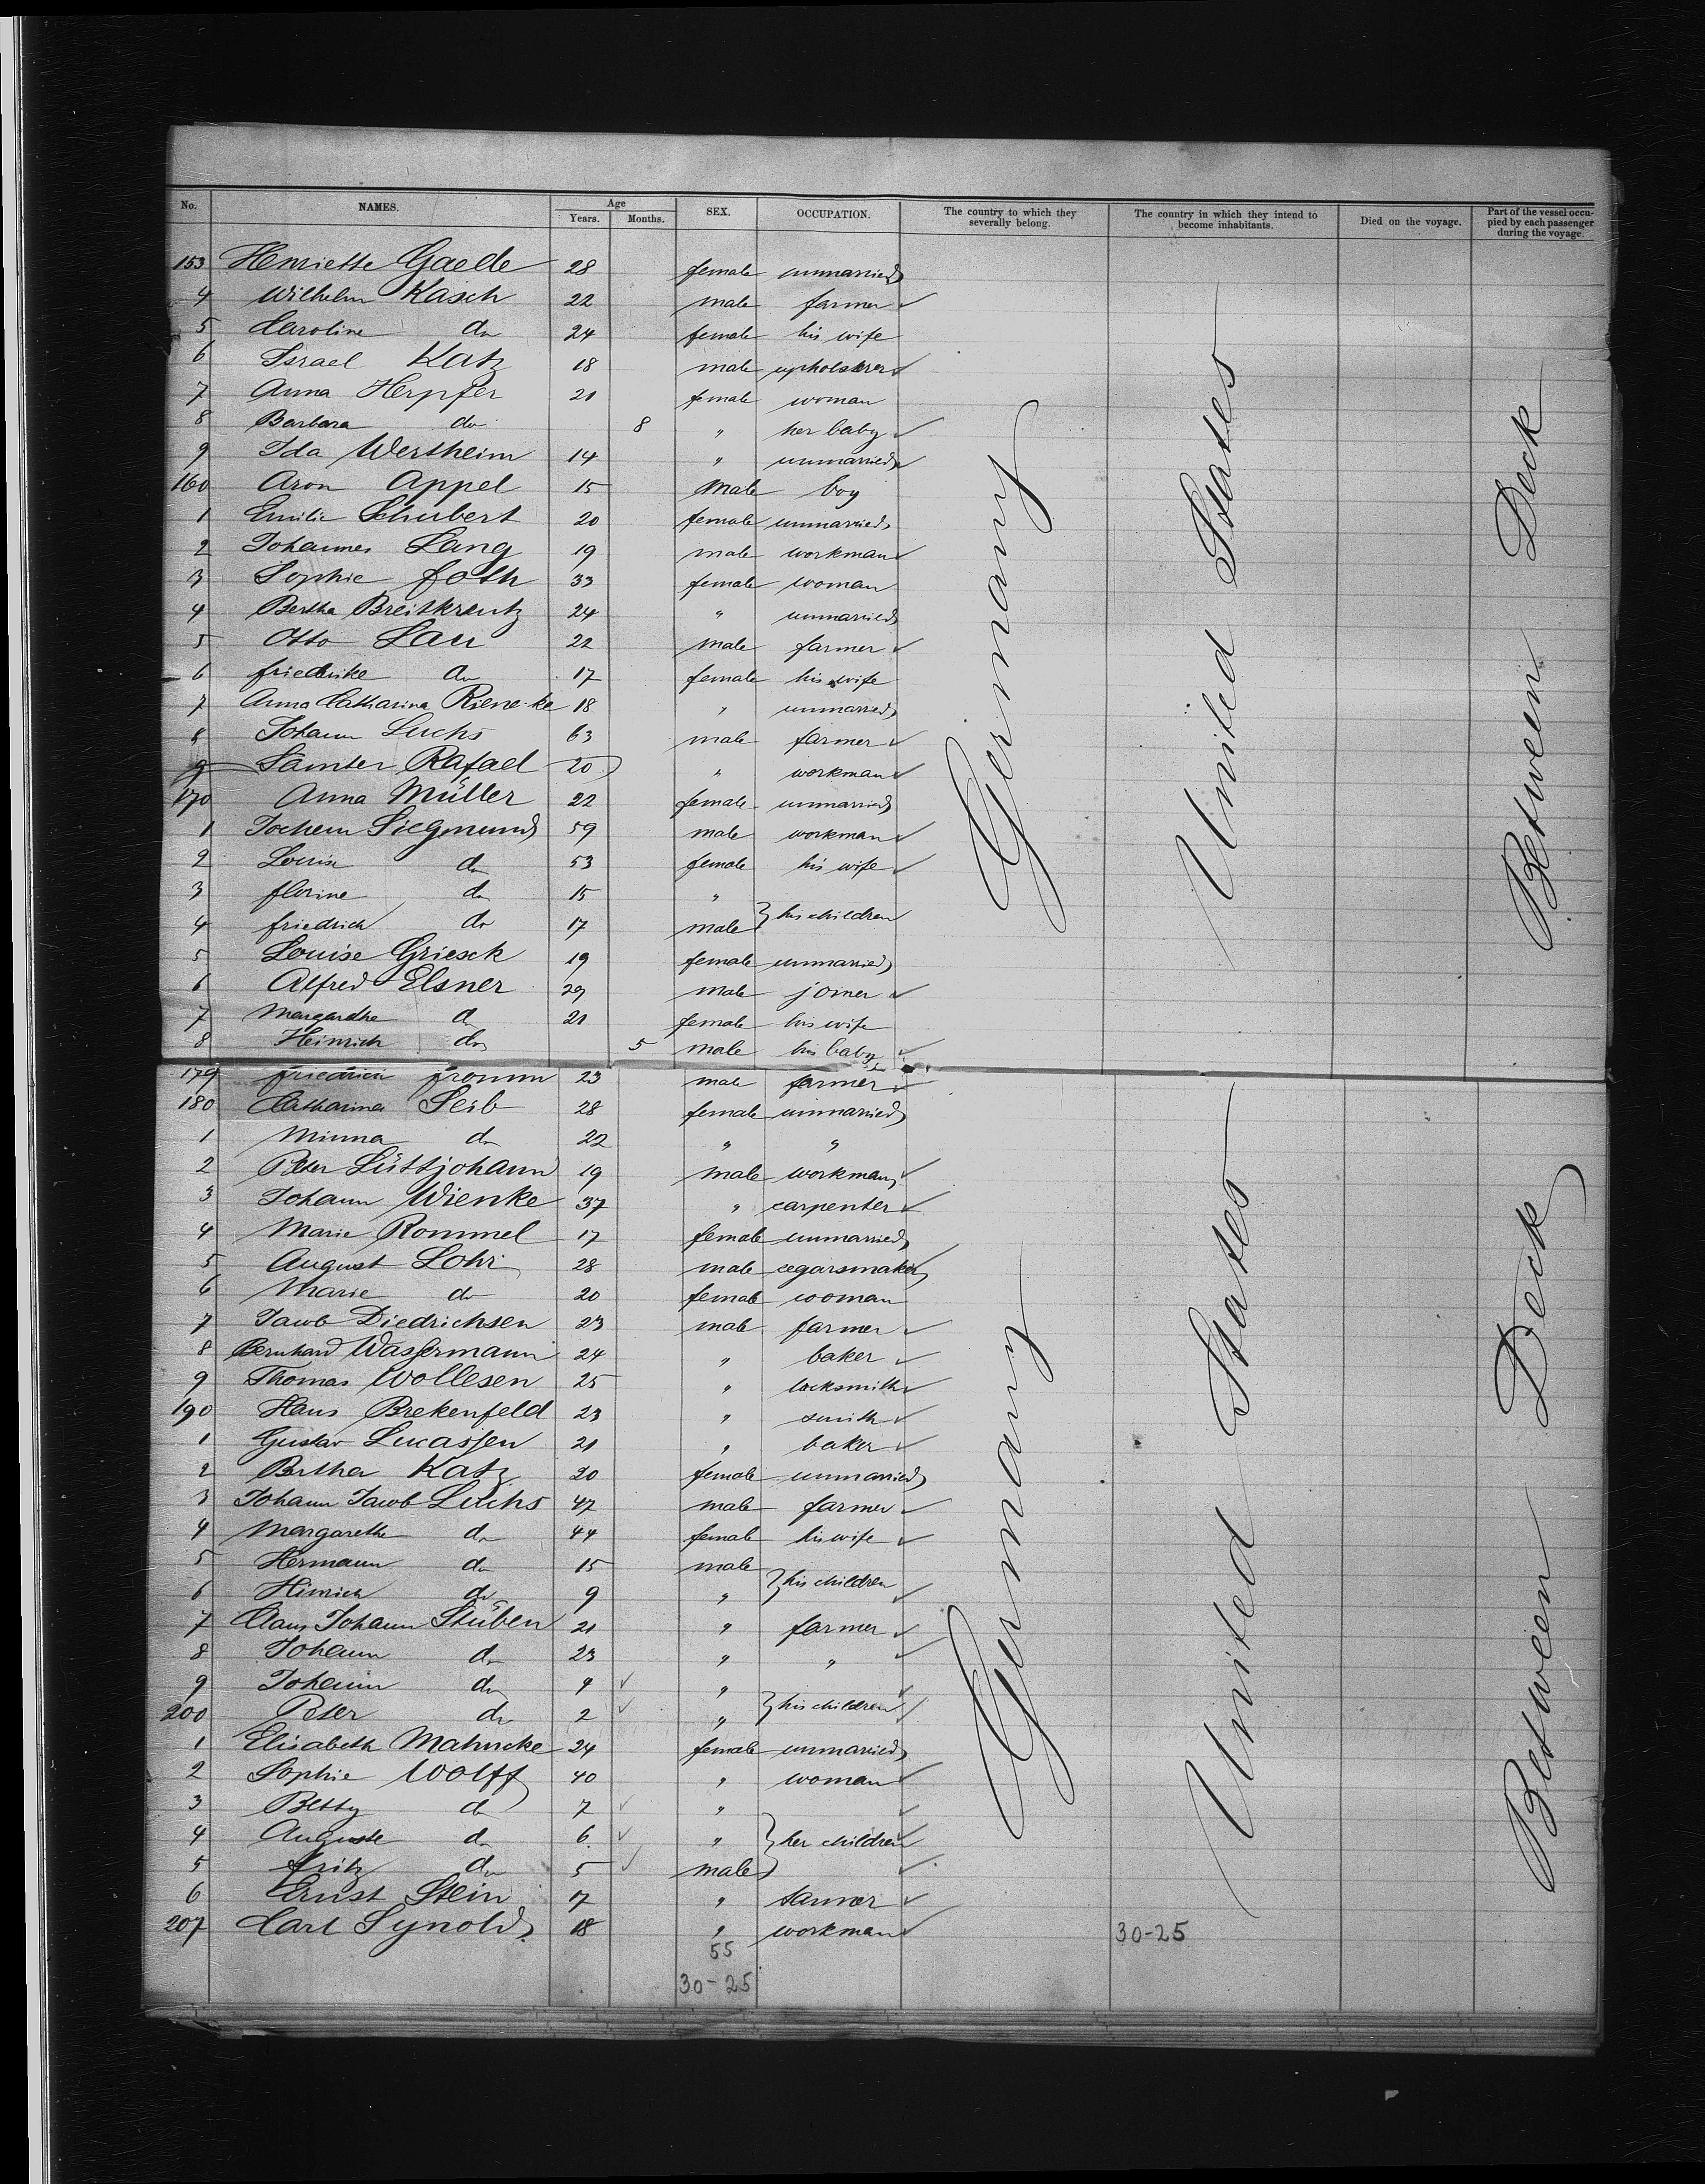 No. NAMES. Age Years. Months. SEX. OCCUPATION. The country to which they severally belong. The country in which they intend to become inhabitants. Died on the voyage. Part of the vessel occupied by each passenger during the voyage.
153 Henriette Gaede 28 female unmarried
4 Wilhelm Kasch 22 male farmer ✓
5 Caroline do 24 female his wife
6 Israel Katz 18 male upholsterer ✓
7 Anna Herpfer 21 female woman
8 Barbara do 8 " her baby ✓
9 Ida Wertheim 14 " unmarried ✓
160 Aron Appel 15 Male boy
1 Emilie Schubert 20 female unmarried
2 Johannes Lang 19 male workman ✓
3 Sophie Foth 33 female woman
4 Bertha Breitkreutz 24 " unmarried
5 Otto Lau 22 male farmer ✓
6 friederike do 17 female his wife
7 Anna Catharina Riene-ke 18 " unmarried
8 Johann Luchs 63 male farmer ✓
9 Samter Rafael 20 " workman ✓
170 Anna Müller 22 female unmarried
1 Jochem Siegmund 59 male workman ✓
2 Louise do 53 female his wife ✓
3 florine do 15 "
4 friedrich do 17 male } his children
5 Louise Griesck 19 female unmarried
6 Alfred Elsner 29 male joiner ✓
7 Margarethe do 21 female his wife
8 Heinrich do 5 male his baby ✓
Germany
United States
Between Deck
179 friedrich fromm 23 male farmer ✓
180 Catharina Seib 28 female unmarried
1 Minna do 22 " "
2 Peter Lüttjohann 19 male workman ✓
3 Johann Wienke 37 " carpenter ✓
4 Marie Rommel 17 female unmarried
5 August Lohr 28 male cegarsmaker
6 Marie do 20 female woman
7 Jacob Diedrichsen 23 male farmer ✓
8 Bernhard Wassermann 24 " baker ✓
9 Thomas Wollesen 25 " locksmith ✓
190 Hans Brekenfeld 23 " smith ✓
1 Gustav Lucassen 21 " baker ✓
2 Bertha Katz 20 female unmarried
3 Johann Jacob Luchs 47 male farmer ✓
4 Margarethe do 44 female his wife ✓
5 Hermann do 15 male
6 Hinrich do 9 " } his children ✓
7 Claus Johann Stüben 21 " farmer ✓
8 Johann do 23 " " ✓
9 Johann do 4 ✓ " ✓
200 Peter do 2 ✓ " } his children ✓
1 Elisabeth Mahncke 24 female unmarried
2 Sophie Wolff 40 " woman ✓
3 Betty do 7 ✓ " ✓
4 Auguste do 6 ✓ " } her children ✓
5 fritz do 5 ✓ male ✓
6 Ernst Stein 17 " tanner ✓
207 Carl Synold 18 " workman ✓
Germany
United States
Between Deck
30-25
55
30-25